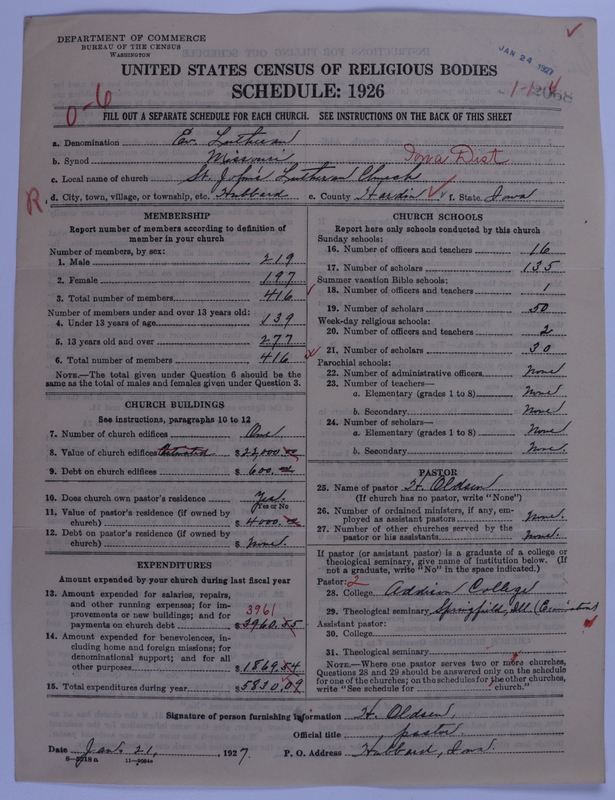 DEPARTMENT OF COMMERCE
BUREAU OF THE CENSUS
WASHINGTON
JAN 24 1927
UNITED STATES CENSUS OF RELIGIOUS BODIES
SCHEDULE: 1926
0-6
FILL OUT A SEPARATE SCHEDULE FOR EACH CHURCH. SEE INSTRUCTIONS ON THE BACK OF THIS SHEET
a. Denomination Ev. Lutheran
b. Synod Missouri Iowa Dist
c. Local name of church St. John's Lutheran Church
R d. City, town, village, or township, etc. Hubbard e. County Hardin f. State Iowa
MEMBERSHIP
Report number of members according to definition of
member in your church
Number of members, by sex:
1. Male 219
2. Female 197
3. Total number of members 416
Number of members under and over 13 years old:
4. Under 13 years of age 139
5. 13 years old and over 277
6. Total number of members 416
NOTE.—The total given under Question 6 should be
same as the total of males and females given under Question 3.
CHURCH BUILDINGS
See instructions, paragraphs 10 to 12
7. Number of church edifices One
8. Value of church edifices Estimated $22,000.00
9. Debt on church edifices $600.00
10. Does church own pastor's residence Yes.
Yes or No
11. Value of pastor's residence (if owned by
church) $4000.00
12. Debt on pastor's residence (if owned by
church) $None.
EXPENDITURES
Amount expended by your church during last fiscal year
13. Amount expended for salaries, repairs,
and other running expenses; for im-
provements or new buildings; and for 3961
payments on church debt $3960.55
14. Amount expended for benevolences, in-
cluding home and foreign missions; for
denominational support; and for all
other purposes $1869.54
15. Total expenditures during year $5830.09
CHURCH SCHOOLS
Report here only schools conducted by this church
Sunday schools:
16. Number of officers and teachers 16
17. Number of scholars 135
Summer vacation Bible schools:
18. Number of officers and teachers 1
19. Number of scholars 50
Week-day religious schools:
20. Number of officers and teachers 2
21. Number of scholars 30
Parochial schools:
22. Number of administrative officers None
23. Number of teachers—
a. Elementary (grades 1 to 8) None
b. Secondary None
24. Number of scholars—
a. Elementary (grades 1 to 8) None
b. Secondary None.
PASTOR
25. Name of pastor H. Oldsen
(If church has no pastor, write "None")
26. Number of ordained ministers, if any, em-
ployed as assistant pastors None.
27. Number of other churches served by the
pastor or his assistants None.
If pastor (or assistant pastor) is a graduate of a college or
theological seminary, give name of institution below. (If
not a graduate, write "No" in the space indicated.)
Pastor: 2
28. College Addison College
29. Theological seminary Springfield, Ill. (Examination)
Assistant pastor:
30. College
31. Theological seminary
NOTE.—Where one pastor serves two or more churches,
Questions 28 and 29 should be answered only on the schedule
for one of the churches; on the schedules for the other churches,
write "See schedule for church."
Signature of person furnishing information H. Oldsen,
Official title pastor
Date Jan. 21, 1927. P. O. Address Hubbard, Iowa.